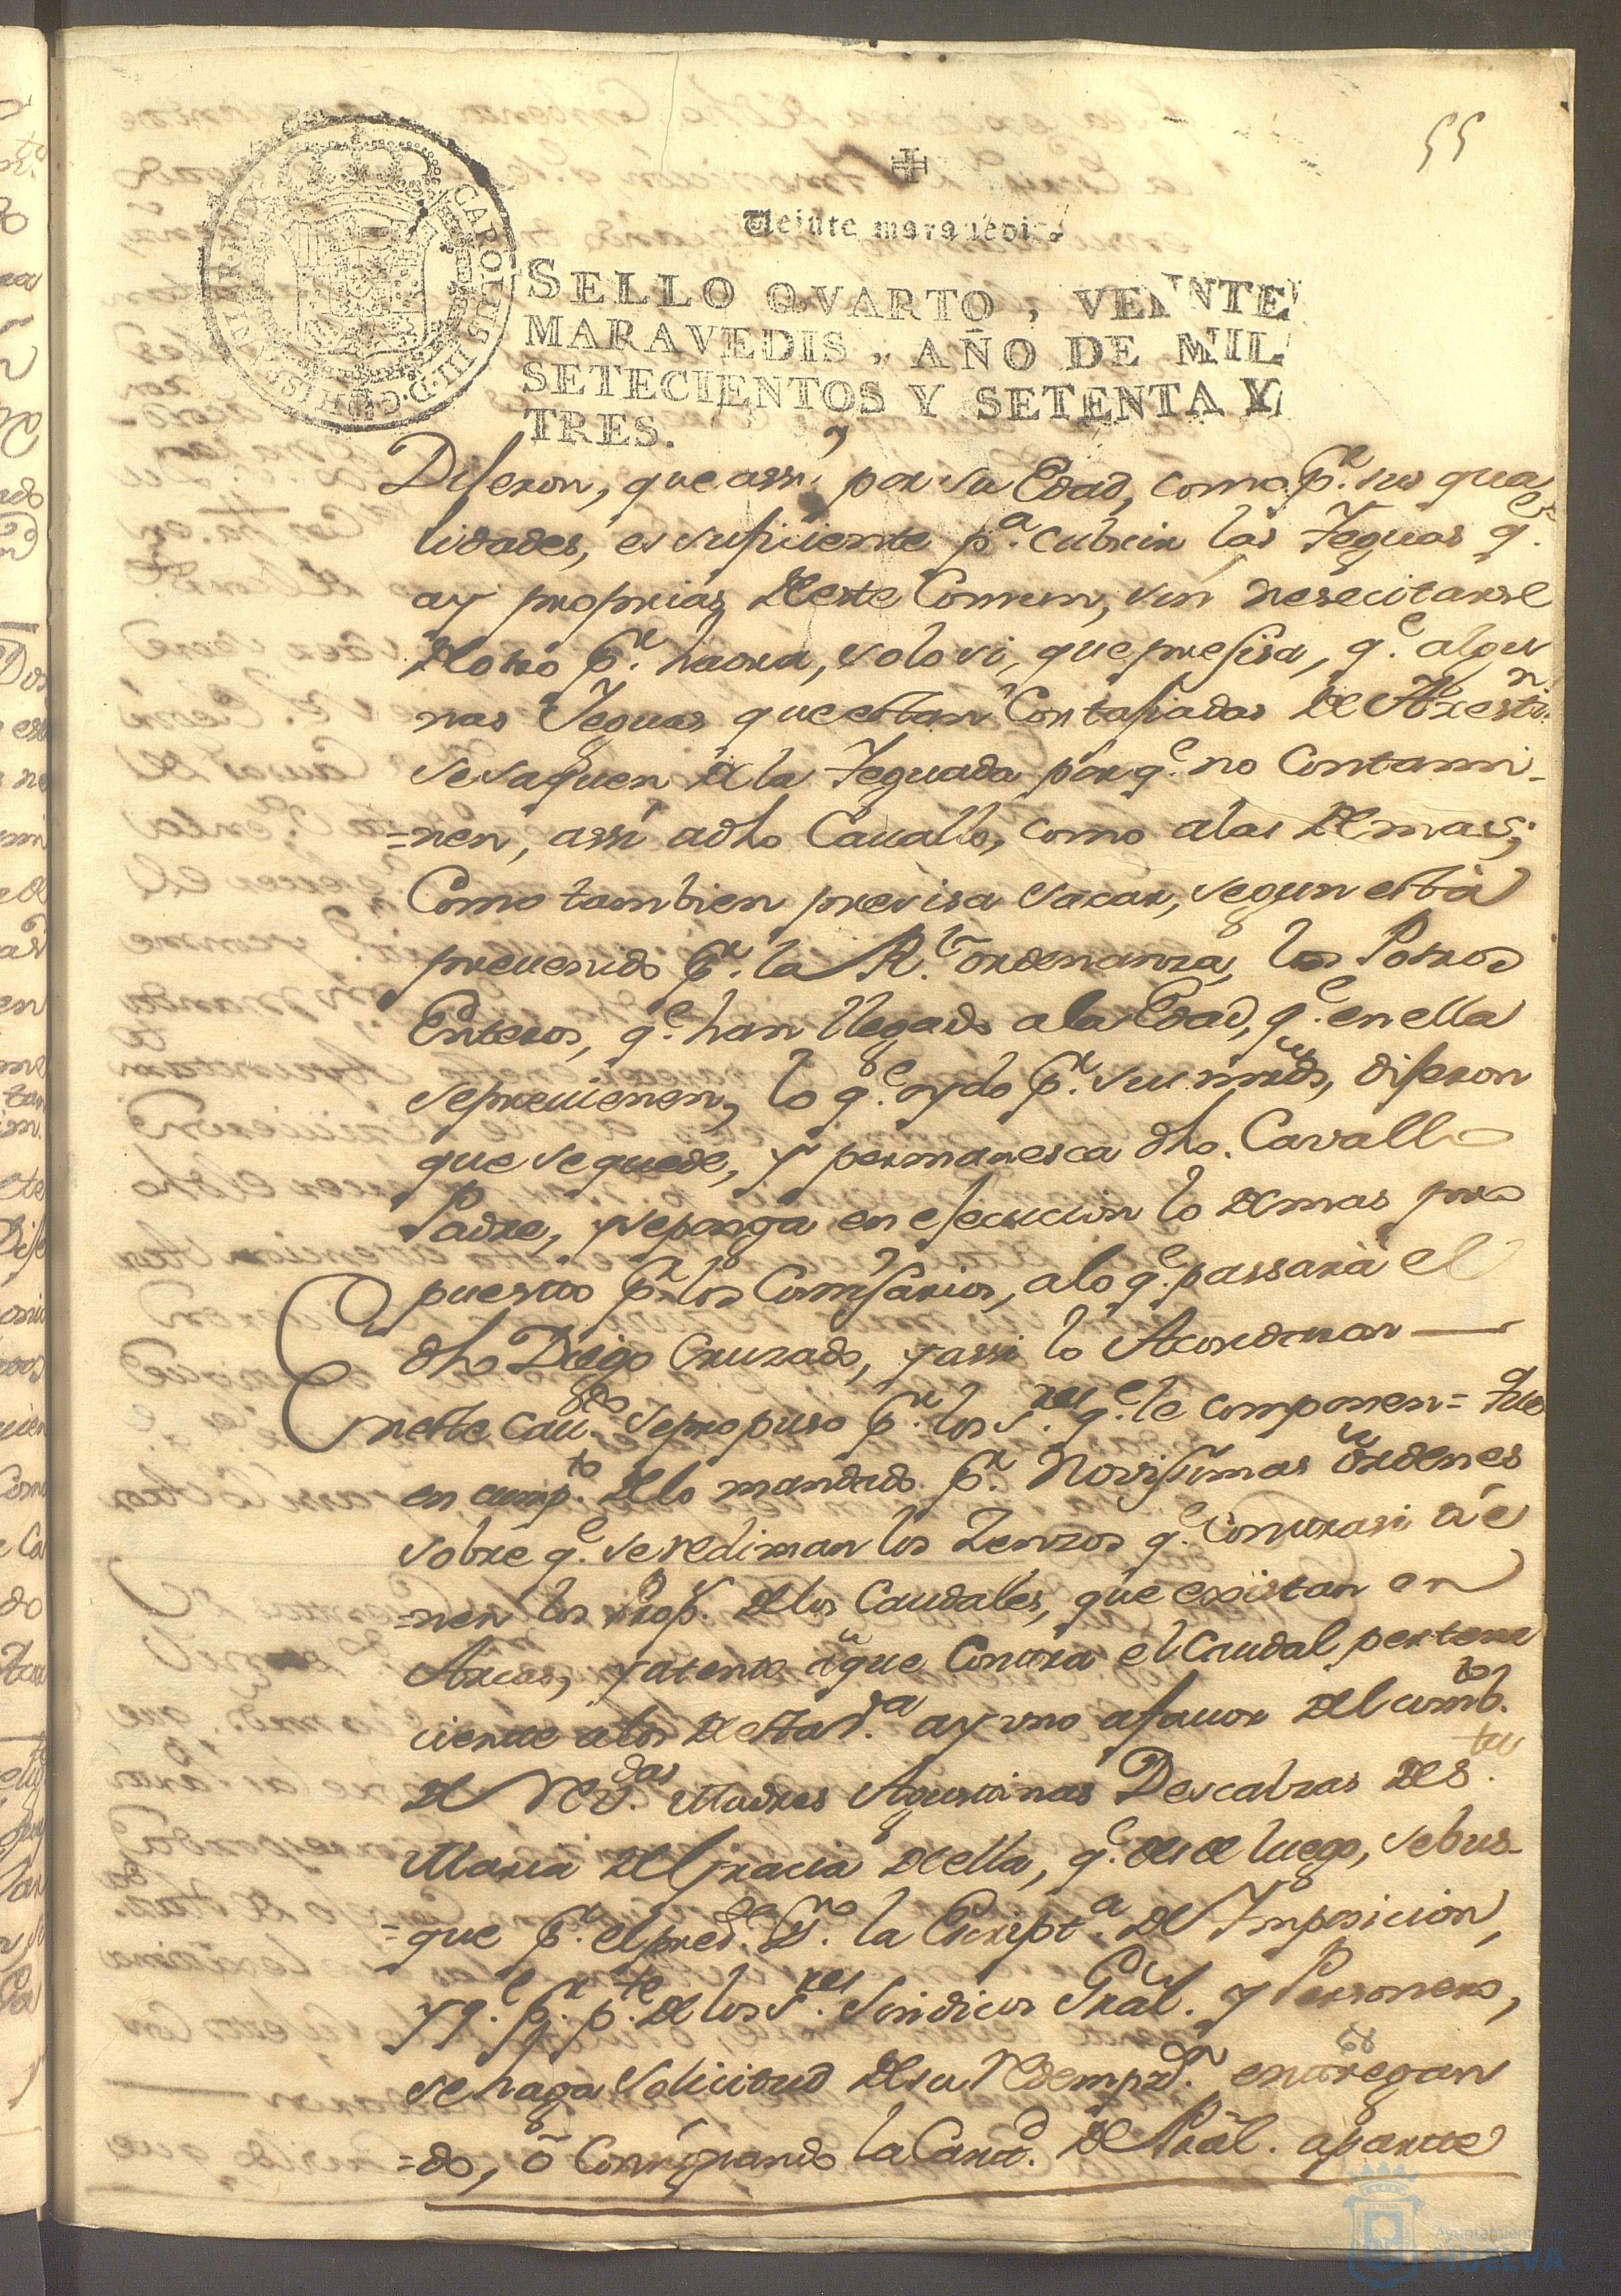 55
Veinte maravedis
CAROLUS III D.G. HISPANIAR REX
SELLO QVARTO, VEINTE
MARAVEDIS, AÑO DE MIL
SETECIENTOS Y SETENTA Y
TRES.
Diseron, que assi por su Edad, como pr. sus qua
lidades, es sufisiente pa. cubrir las Yeguas qe.
ay proprias deeste Comun, sin nesecitarse
de otro pr. haora, solo si, que presisa, qe. algu
nas Yeguas que estan Contasiadas de Arestin
se saquen de la Yeguada por qe. no Contami-
=nen, assi adho Cauallo, como alas demas;
Como tambien presisa sacar, segun està
preuenido pr. la Rl. ordenanza, los Potros
Enteros, qe. han llegado ala Edad, qe. en ella
se preuienen, lo qe. oydo pr. sus mrds, diseron
que se quede, y permanesca dho. Cavallo
Padre, y se ponga en esecucion lo demas pro
puesto pr. los Comisarios, alo qe. passarà el
dho Diego Cruzado, y assi lo Acordaron —
En este Cauildo se propuso pr. los sres. qe. le componen = Que
en cumpto. de lo mandado pr. Novisimas ordenes
sobre qe. se rediman los Zenzos qe. Contra si tie
=nen los Prop. de los Caudales, que existan en
Arcas, y atento à que Contra el Caudal pertene
ciente alos de esta Va. ay uno afauor del Combto.
de Revdas. Madres Agustinas Descalzas de Sta.
Maria de Gracia de ella, qe. desde luego, se bus-
=que pr. el pred. la Escripta. de Imposicion,
y qe. pr. pte. de los Sres. Sindicos Gral. y Personero,
se haga Solicitud de su Redempn. entregan
=do, ò Consignando la Cantd. de Pral. aparte
Ayuntamiento
HUELVA